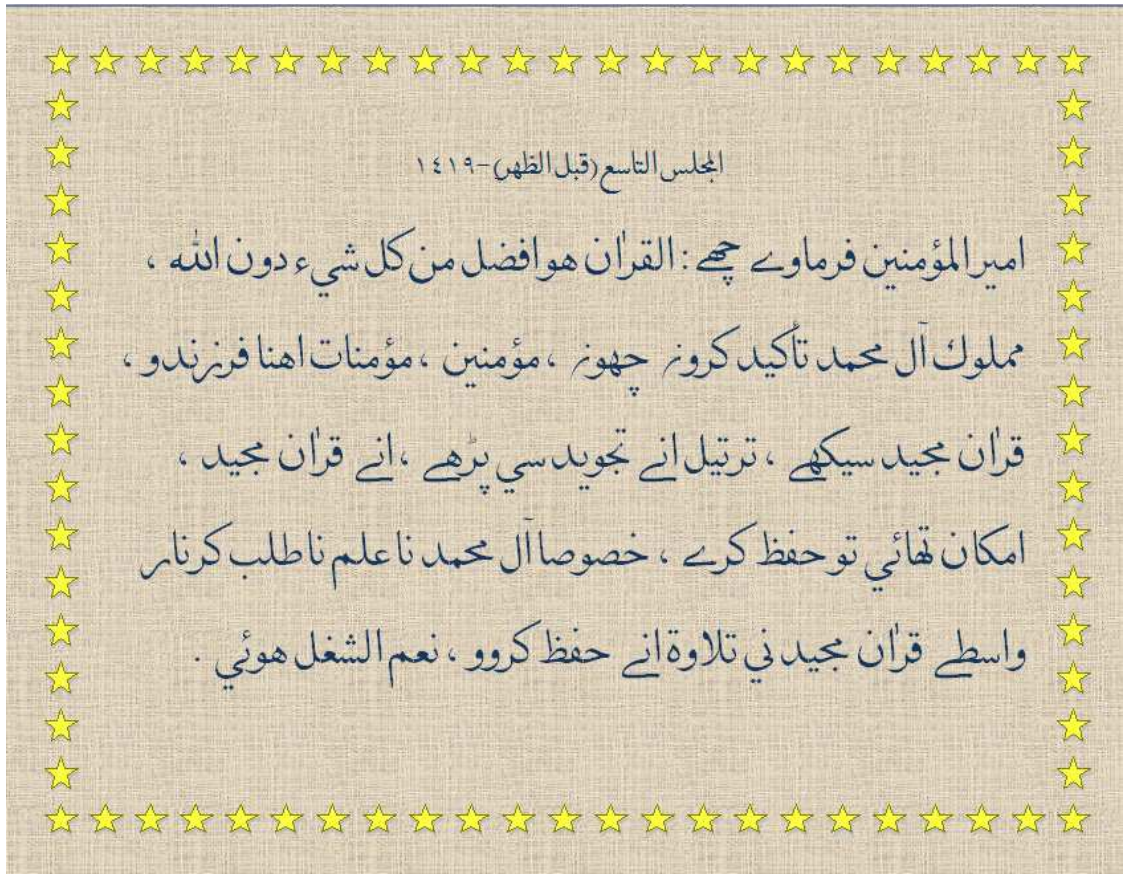 المجلس التاسع (قبل الظهر)-١٤١٩
امير المؤمنين فرماوے چھے : القرأن هو افضل من كل شيء دون الله ،
مملوك آل محمد تأكيد كروں چھوں ، مؤمنين ، مؤمنات اهنا فرزندو ،
قرأن مجيد سيكھے ، ترتيل انے تجويد سي پڑھے ، انے قرأن مجيد ،
امكان تھائي تو حفظ كرے ، خصوصا آل محمد نا علم نا طلب كرنار
واسطے قرأن مجيد ني تلاوة انے حفظ كروو ، نعم الشغل هوئي .